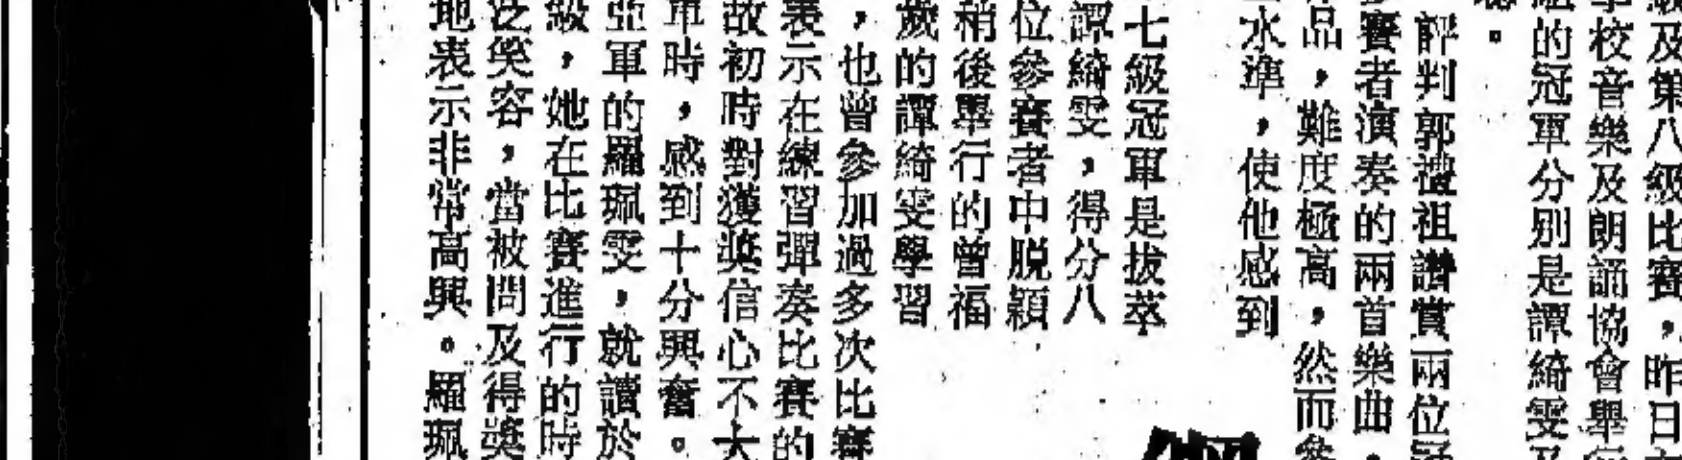 級及第八級比賽，昨日
學校音樂及朗誦協會舉
組的冠軍分別是譚綺雯及
。
評判郭禮祖讚賞兩位冠
參賽者演奏的兩首樂曲，
品，難度極高，然而參
水準，使他感到
七級冠軍是拔萃
譚綺雯，得分八
位參賽者中脱穎
稍後舉行的曾福
歲的譚綺雯學習
，也曾參加過多次比賽
表示在練習彈奏比賽的
故初時對獲獎信心不大
軍時，感到十分興奮。
亞軍的羅珮雯，就讀於
級，她在比賽進行的時
泛笑容，當被問及得獎
地表示非常高興。羅珮